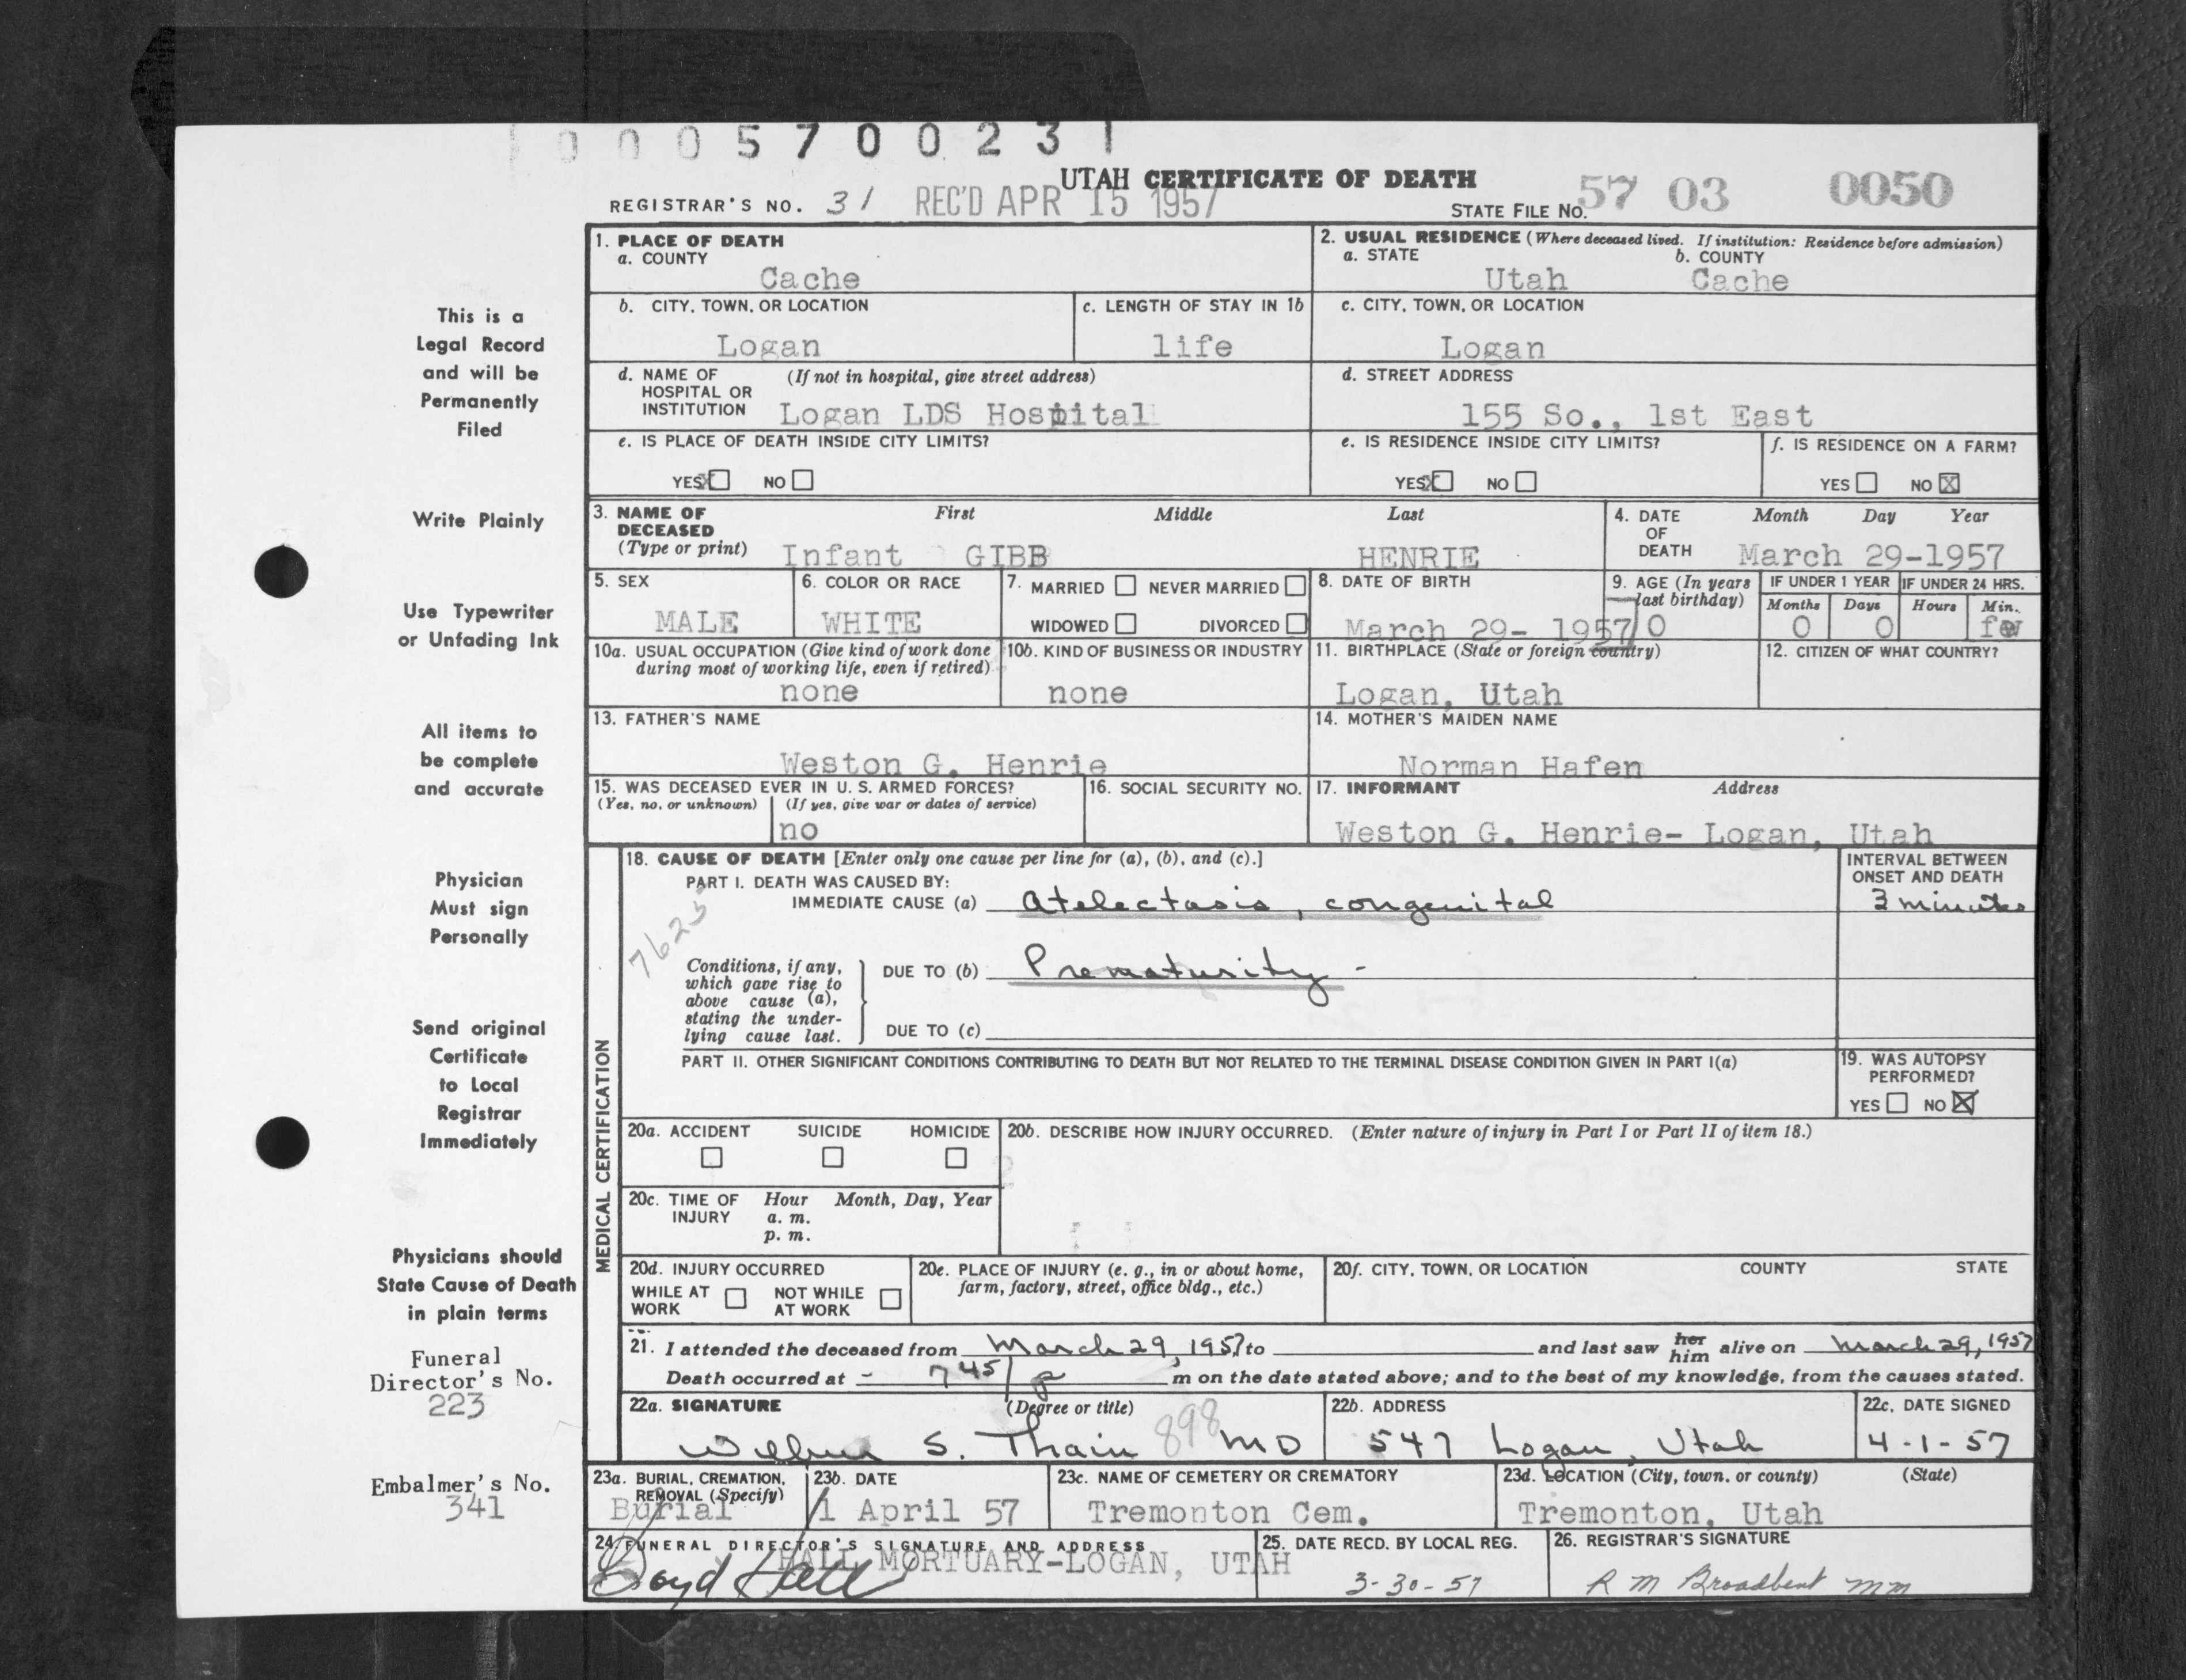 0005700231
UTAH CERTIFICATE OF DEATH
REGISTRAR'S NO. 31 REC'D APR 15 1957 STATE FILE NO. 57 03 0050
1. PLACE OF DEATH
a. COUNTY
Cache
2. USUAL RESIDENCE (Where deceased lived. If institution: Residence before admission)
a. STATE b. COUNTY
Utah Cache
b. CITY, TOWN, OR LOCATION
Logan
c. LENGTH OF STAY IN 1b
life
c. CITY, TOWN, OR LOCATION
Logan
d. NAME OF (If not in hospital, give street address)
HOSPITAL OR
INSTITUTION Logan LDS Hospital
d. STREET ADDRESS
155 So., 1st East
e. IS PLACE OF DEATH INSIDE CITY LIMITS?
YES X NO
e. IS RESIDENCE INSIDE CITY LIMITS?
YES X NO
f. IS RESIDENCE ON A FARM?
YES NO X
3. NAME OF DECEASED (Type or print)
First Middle Last
Infant GIBB HENRIE
4. DATE OF DEATH
Month Day Year
March 29-1957
5. SEX
MALE
6. COLOR OR RACE
WHITE
7. MARRIED NEVER MARRIED
WIDOWED DIVORCED
8. DATE OF BIRTH
March 29- 1957
9. AGE (In years last birthday)
0
IF UNDER 1 YEAR IF UNDER 24 HRS.
Months Days Hours Min.
0 0 few
10a. USUAL OCCUPATION (Give kind of work done
during most of working life, even if retired)
none
10b. KIND OF BUSINESS OR INDUSTRY
none
11. BIRTHPLACE (State or foreign country)
Logan, Utah
12. CITIZEN OF WHAT COUNTRY?
13. FATHER'S NAME
Weston G. Henrie
14. MOTHER'S MAIDEN NAME
Norman Hafen
15. WAS DECEASED EVER IN U. S. ARMED FORCES?
(Yes, no, or unknown) (If yes, give war or dates of service)
no
16. SOCIAL SECURITY NO.
17. INFORMANT Address
Weston G. Henrie- Logan, Utah
MEDICAL CERTIFICATION
18. CAUSE OF DEATH [Enter only one cause per line for (a), (b), and (c).]
INTERVAL BETWEEN
ONSET AND DEATH
PART I. DEATH WAS CAUSED BY:
IMMEDIATE CAUSE (a) Atelectasis, congenital 3 minutes
7625
Conditions, if any,
which gave rise to
above cause (a),
stating the under-
lying cause last.
DUE TO (b) Prematurity -
DUE TO (c)
PART II. OTHER SIGNIFICANT CONDITIONS CONTRIBUTING TO DEATH BUT NOT RELATED TO THE TERMINAL DISEASE CONDITION GIVEN IN PART I(a)
19. WAS AUTOPSY
PERFORMED?
YES NO X
20a. ACCIDENT SUICIDE HOMICIDE
20b. DESCRIBE HOW INJURY OCCURRED. (Enter nature of injury in Part I or Part II of item 18.)
20c. TIME OF INJURY Hour Month, Day, Year
a. m.
p. m.
20d. INJURY OCCURRED
WHILE AT WORK NOT WHILE AT WORK
20e. PLACE OF INJURY (e. g., in or about home,
farm, factory, street, office bldg., etc.)
20f. CITY, TOWN, OR LOCATION COUNTY STATE
21. I attended the deceased from March 29, 1957 to and last saw her him alive on March 29, 1957
Death occurred at - 745/p m on the date stated above; and to the best of my knowledge, from the causes stated.
22a. SIGNATURE (Degree or title)
S. Thain 898 MD
22b. ADDRESS
547 Logan, Utah
22c. DATE SIGNED
4-1-57
23a. BURIAL, CREMATION,
REMOVAL (Specify)
Burial
23b. DATE
1 April 57
23c. NAME OF CEMETERY OR CREMATORY
Tremonton Cem.
23d. LOCATION (City, town, or county) (State)
Tremonton, Utah
24. FUNERAL DIRECTOR'S SIGNATURE AND ADDRESS
HALL MORTUARY-LOGAN, UTAH
Boyd Hall
25. DATE RECD. BY LOCAL REG.
3-30-57
26. REGISTRAR'S SIGNATURE
R M Broadbent mm
This is a
Legal Record
and will be
Permanently
Filed
Write Plainly
Use Typewriter
or Unfading Ink
All items to
be complete
and accurate
Physician
Must sign
Personally
Send original
Certificate
to Local
Registrar
Immediately
Physicians should
State Cause of Death
in plain terms
Funeral
Director's No.
223
Embalmer's No.
341